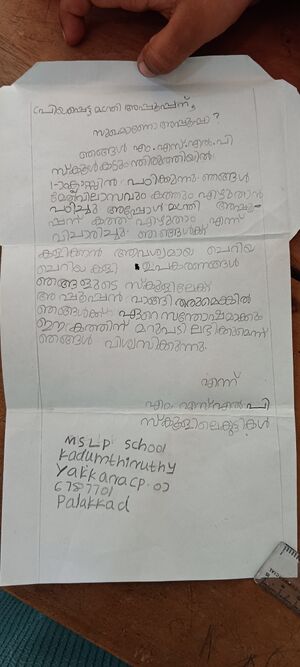 പ്രിയപ്പെട്ട മന്ത്രി അപ്പൂപ്പന്,
സുഖമാണോ അപ്പൂപ്പാ?
ഞങ്ങൾ എം.എസ്.എൽ.പി
സ്കൂൾ കടുംതിരുത്തിയിൽ
1-ാം ക്ലാസ്സിൽ പഠിക്കുന്നു. ഞങ്ങൾ
മേൽവിലാസവും കത്തും എഴുതാൻ
പഠിച്ചു അപ്പോൾ മന്ത്രി അപ്പൂ-
പ്പന് കത്ത് എഴുതാം എന്ന്
വിചാരിച്ചു. ഞങ്ങൾക്ക്
കളിക്കാൻ ആവശ്യമായ ചെറിയ
ചെറിയ കളി ഉപകരണങ്ങൾ
ഞങ്ങളുടെ സ്കൂളിലേക്ക്
അപ്പൂപ്പൻ വാങ്ങി തരുമെങ്കിൽ
ഞങ്ങൾക്ക് ഏറെ സന്തോഷമാകും
ഈ കത്തിന് മറുപടി ലഭിക്കുമെന്ന്
ഞങ്ങൾ വിശ്വസിക്കുന്നു.
എന്ന്
എം.എസ്.എൽ.പി
സ്കൂളിലെ കുട്ടികൾ
MSLP School
Kadumthiruthy
Yakkara C P.O
6787701
Palakkad